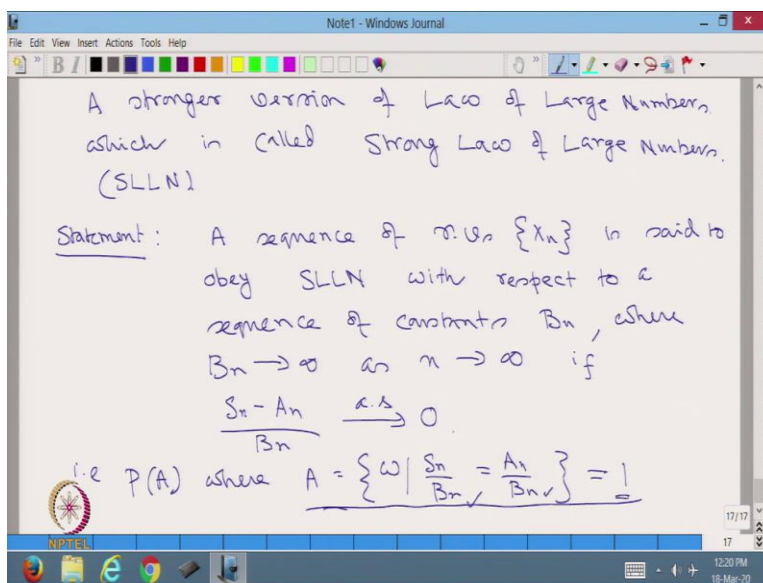 Note1 - Windows Journal
File Edit View Insert Actions Tools Help
A stronger version of Law of Large Numbers
which is called Strong Law of Large Numbers.
(SLLN)
Statement : A sequence of r.vs {Xn} is said to
obey SLLN with respect to a
sequence of constants Bn, where
Bn → ∞ as n → ∞ if
(Sn - An) / Bn —a.s→ 0.
i.e P(A) where A = {ω | Sn/Bn = An/Bn} = 1
NPTEL
17/17
17
12:20 PM
18-Mar-20